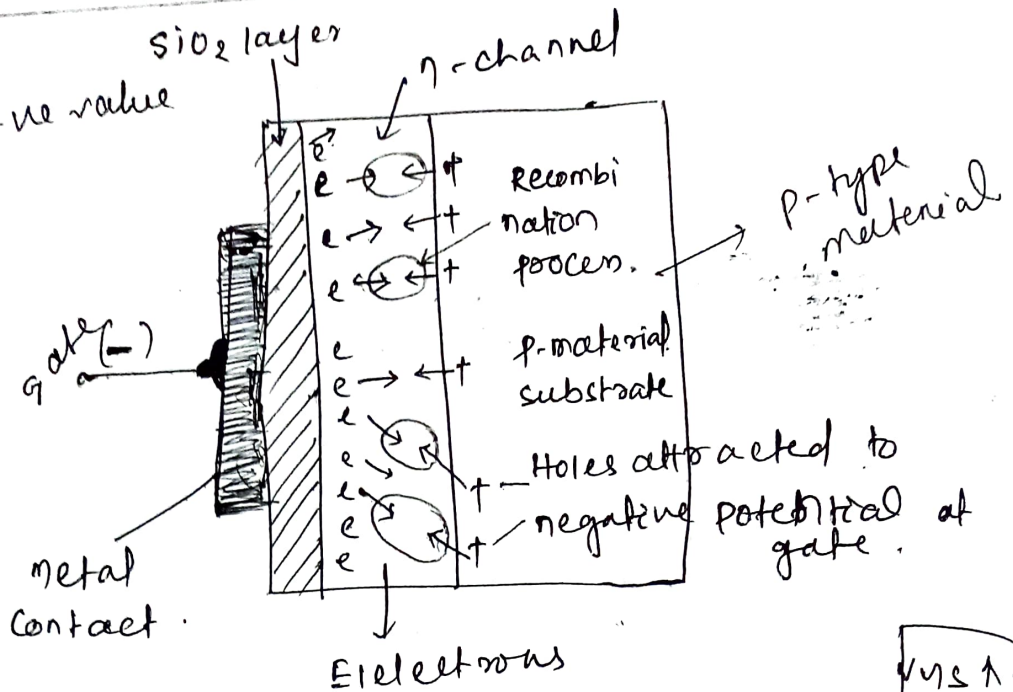 SiO2 layer
n-channel
-ve value
e
e + Recombi
e + nation
e + proces.
p-type
material
Gate (-)
e
e + p-material
substrate
e
e
e + Holes attracted to
e + negative potebtial at
gate.
e
Metal
Contact.
Elelectrons
VGS ↑